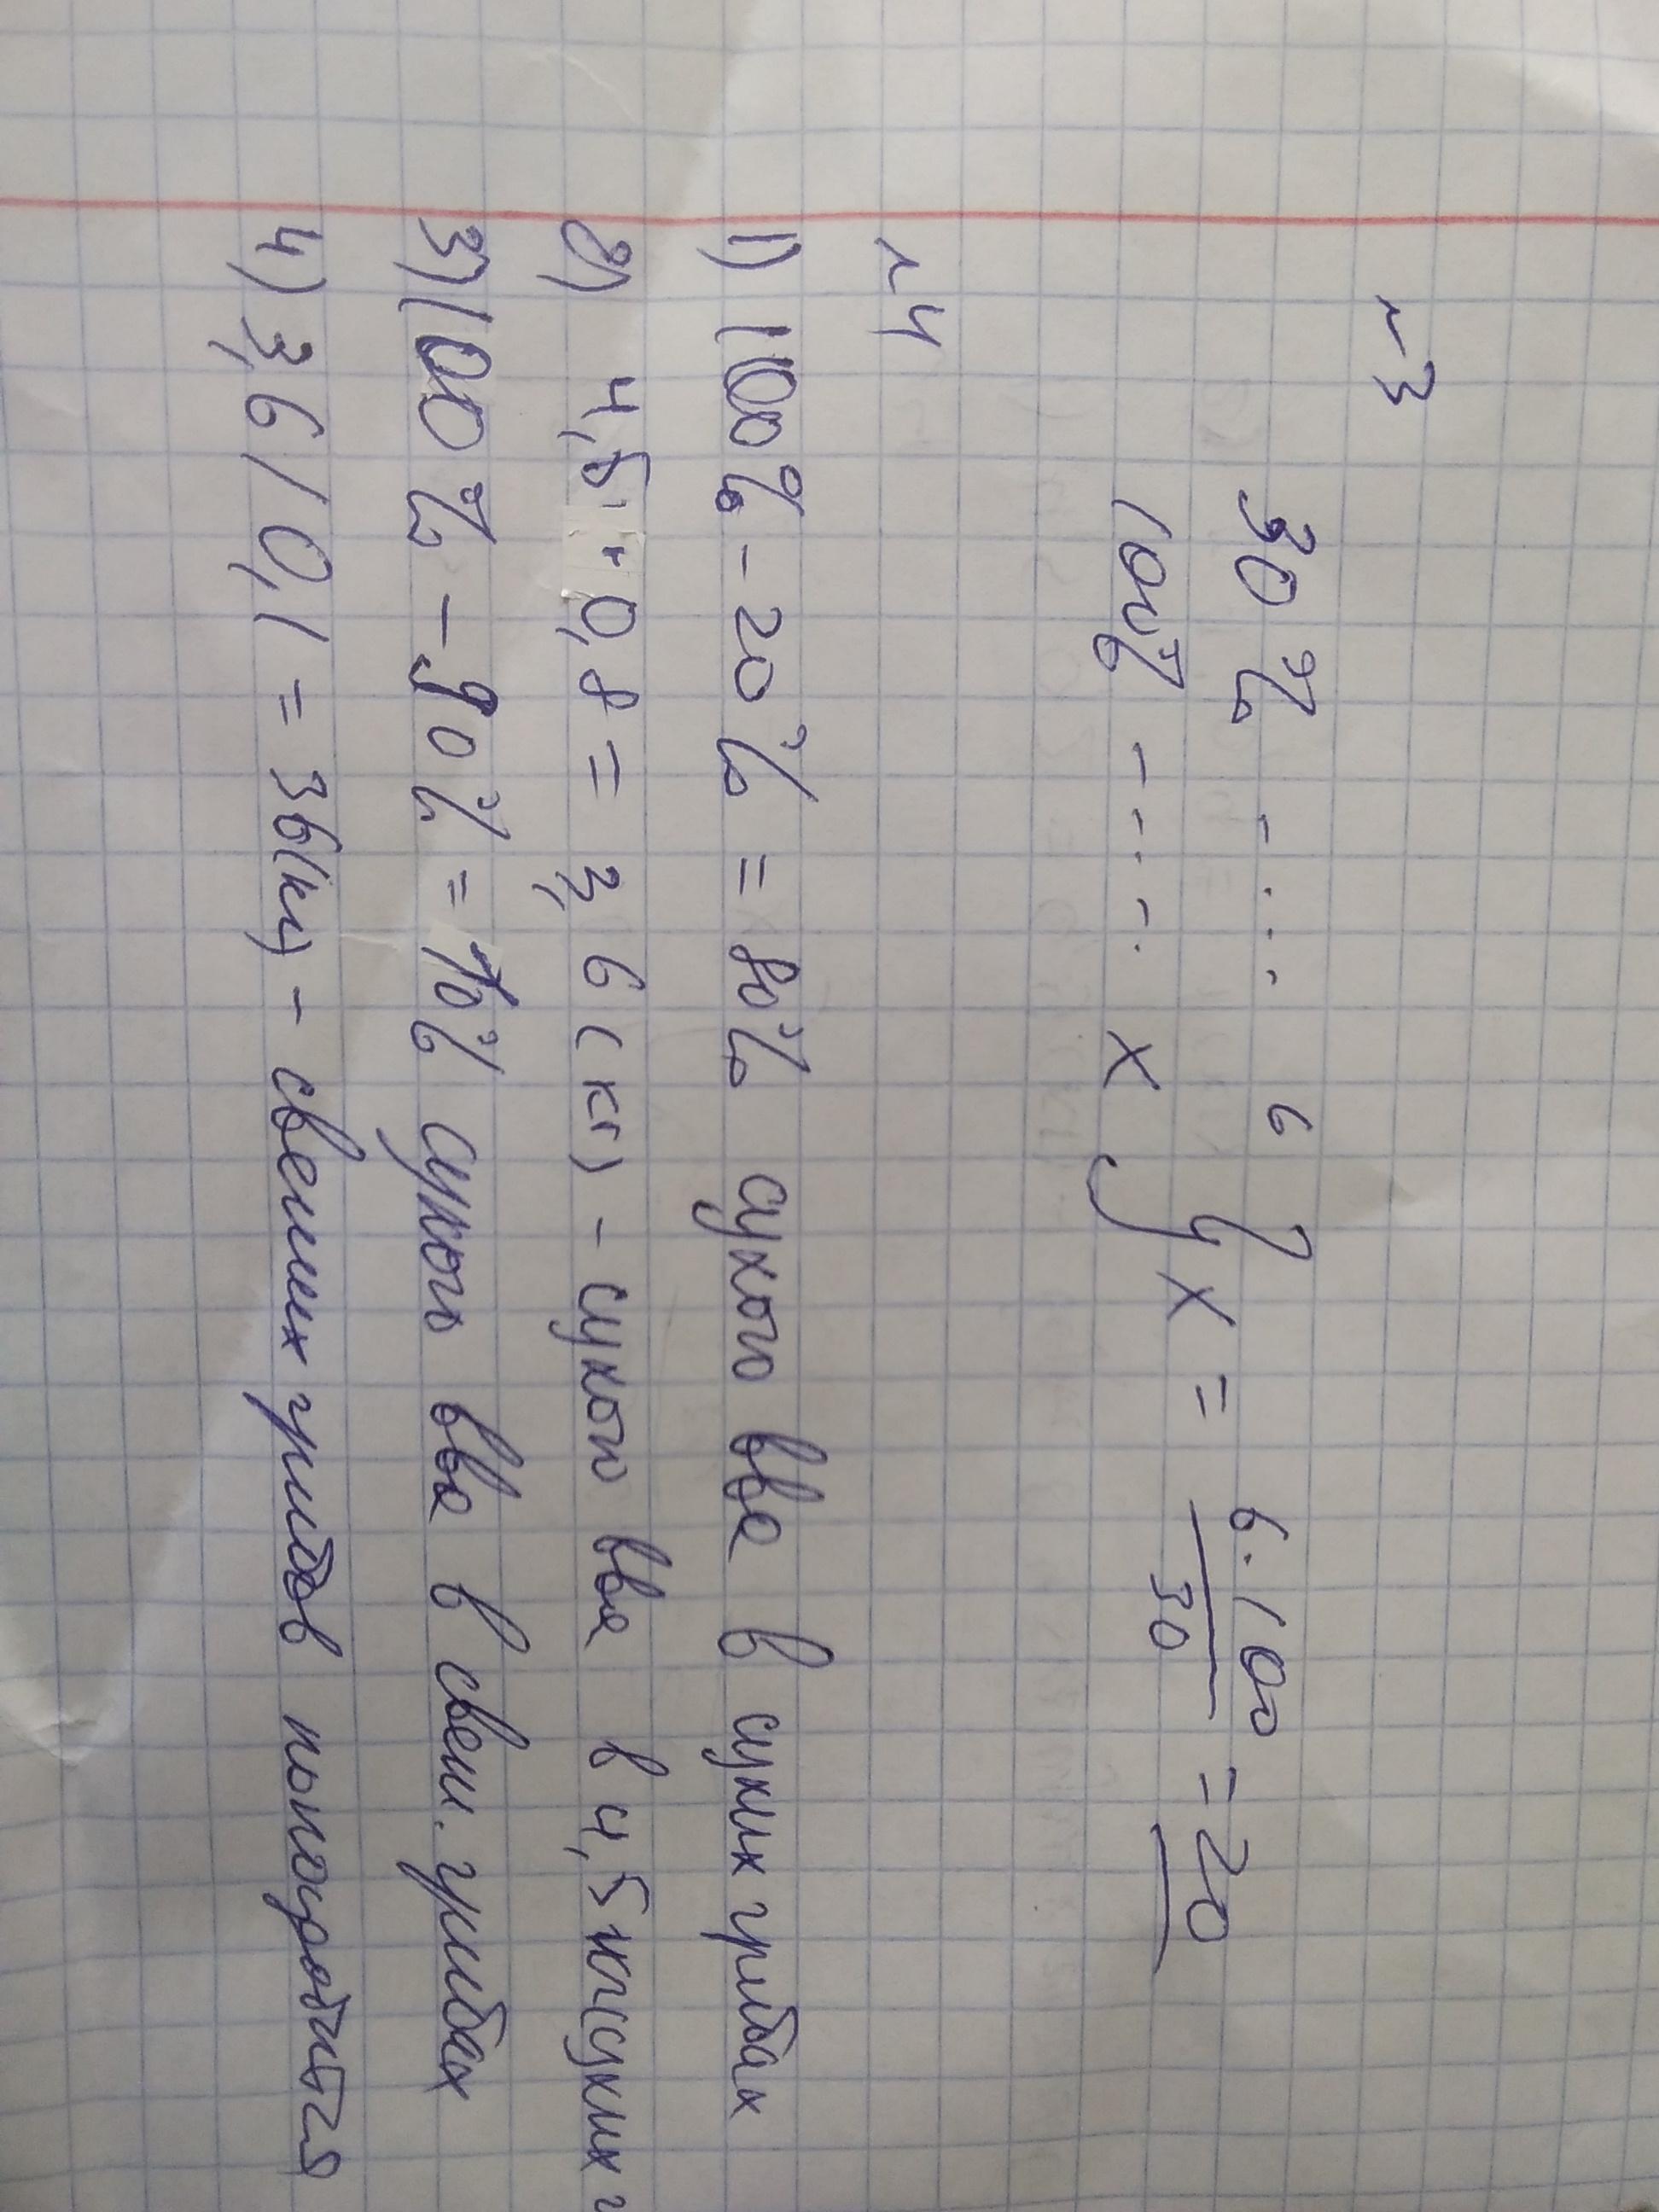 ~3
30% - . . - . . - 6
100% - - . . - . . x } x = 6·100/30 = 20
~4
1) 100% - 20% = 80% сухого вва в сухих грибах
2) 4,5 · 0,8 = 3,6 (кг) - сухого вва в 4,5 кг сухих г
3) 100% - 90% = 10% сухого вва в свеш. грибах
4) 3,6 / 0,1 = 36(кг) - свеших грибов